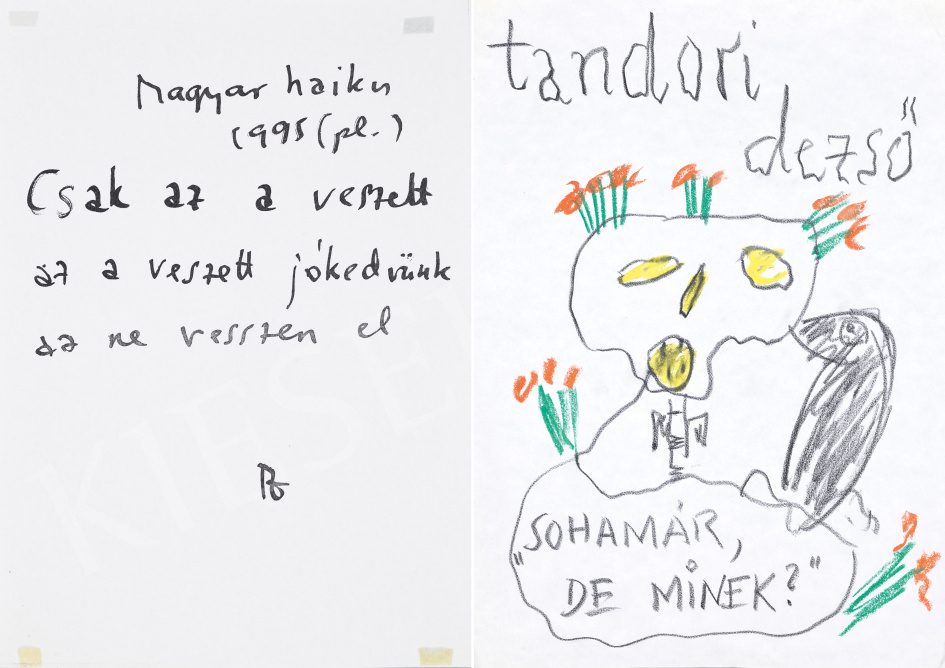 Magyar haiku
1995 (pl.)
Csak az a veszett
az a veszett jókedvünk
az ne vesszen el
tandori
dezső
"SOHAMÁR,
DE MINEK?"